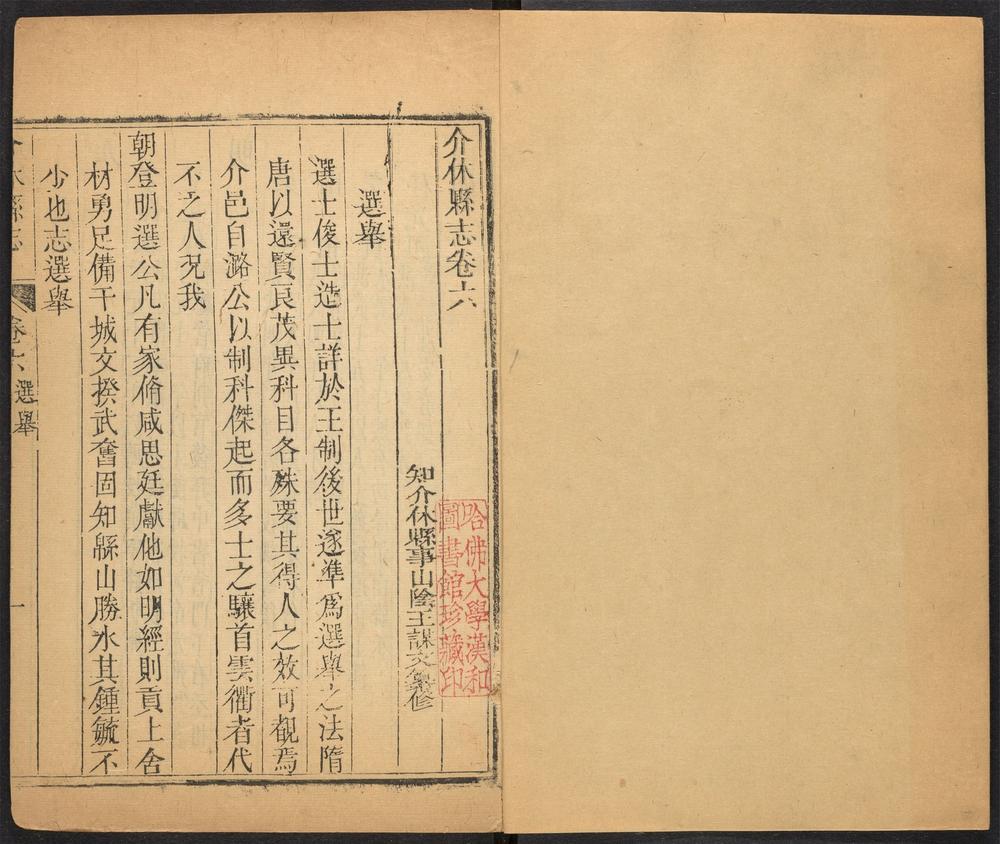 介休縣志卷六
知介休縣事山陰王謀文纂修
哈佛大學漢和
圖書館珍藏印
選舉
選士俊士造士詳於王制後世遂準爲選舉之法隋
唐以還賢良茂異科目各殊要其得人之效可覩焉
介邑自潞公以制科傑起而多士之驤首雲衢者代
不乏人况我
朝登明選公凡有家脩咸思廷獻他如明經則貢上舍
材勇足備干城文揆武奮固知緜山勝水其鍾毓不
少也志選舉
介休縣志
卷六 選舉
一